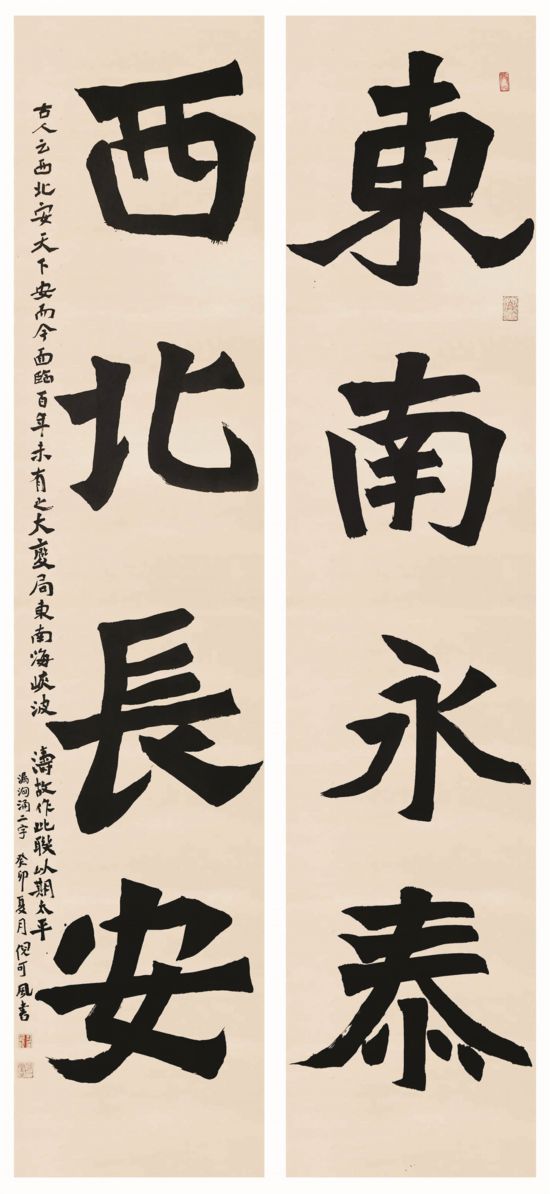 東南永泰
西北長安
古人云西北安天下安而今面臨百年未有之大變局東南海峽波濤故作此聯以期太平
漏洶涌二字 癸卯夏月倪可風書